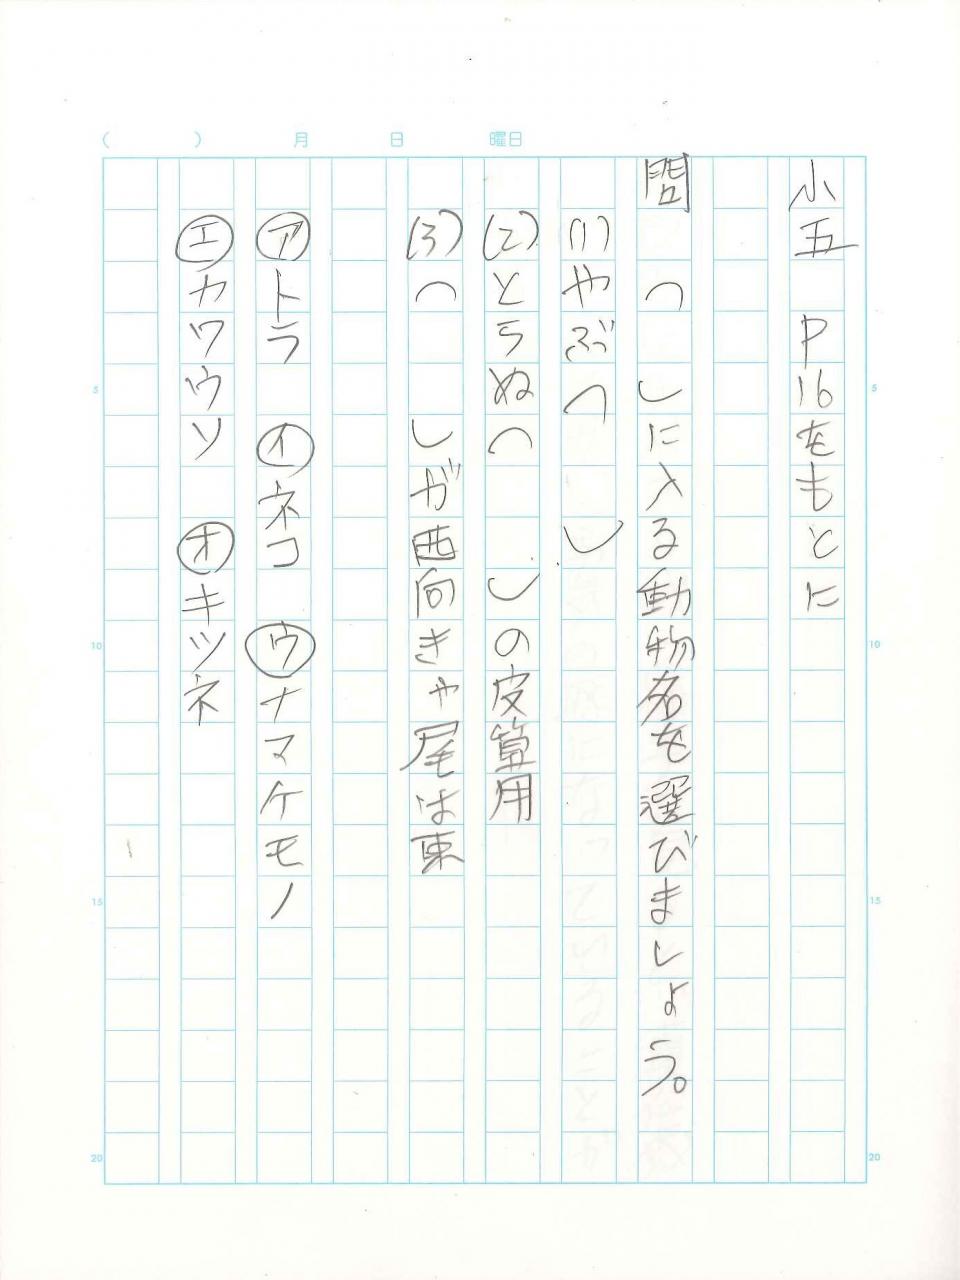 (　　　)　　月　　日　　曜日
小五　P16をもとに
問　（　）に入る動物名を選びましょう。
(1)やぶへ（　）
(2)とらぬ（　）の皮算用
(3)（　）が西向きゃ尾は東
㋐トラ　㋑ネコ　㋒ナマケモノ
㋓カワウソ　㋔キツネ
5
10
15
20
5
10
15
20